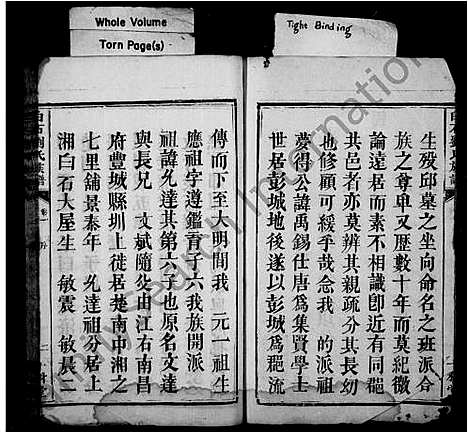 Whole Volume
Torn Page(s)
Tight Binding
生殁邱墓之坐向命名之班派合
族之尊卑又歷數十年而莫紀微
論遠居而素不相識卽近有同
其邑者亦莫辨其親疏分其長幼
也修顧可緩乎哉念我 的派祖
夢得公諱禹錫仕唐爲集賢學士
世居彭城地後遂以彭城爲 流
傳而下至大明間我 元一祖生
應祖字遵鑑育六六我族開派
祖諱允達其第六子也原名文達
與長兄 文斌隨父由江右南昌
府豐城縣圳上徙居楚南中湘之
七里舖景泰年 允達祖分居上
湘白石大屋生 敏震 敏辰二
FamilySearch International